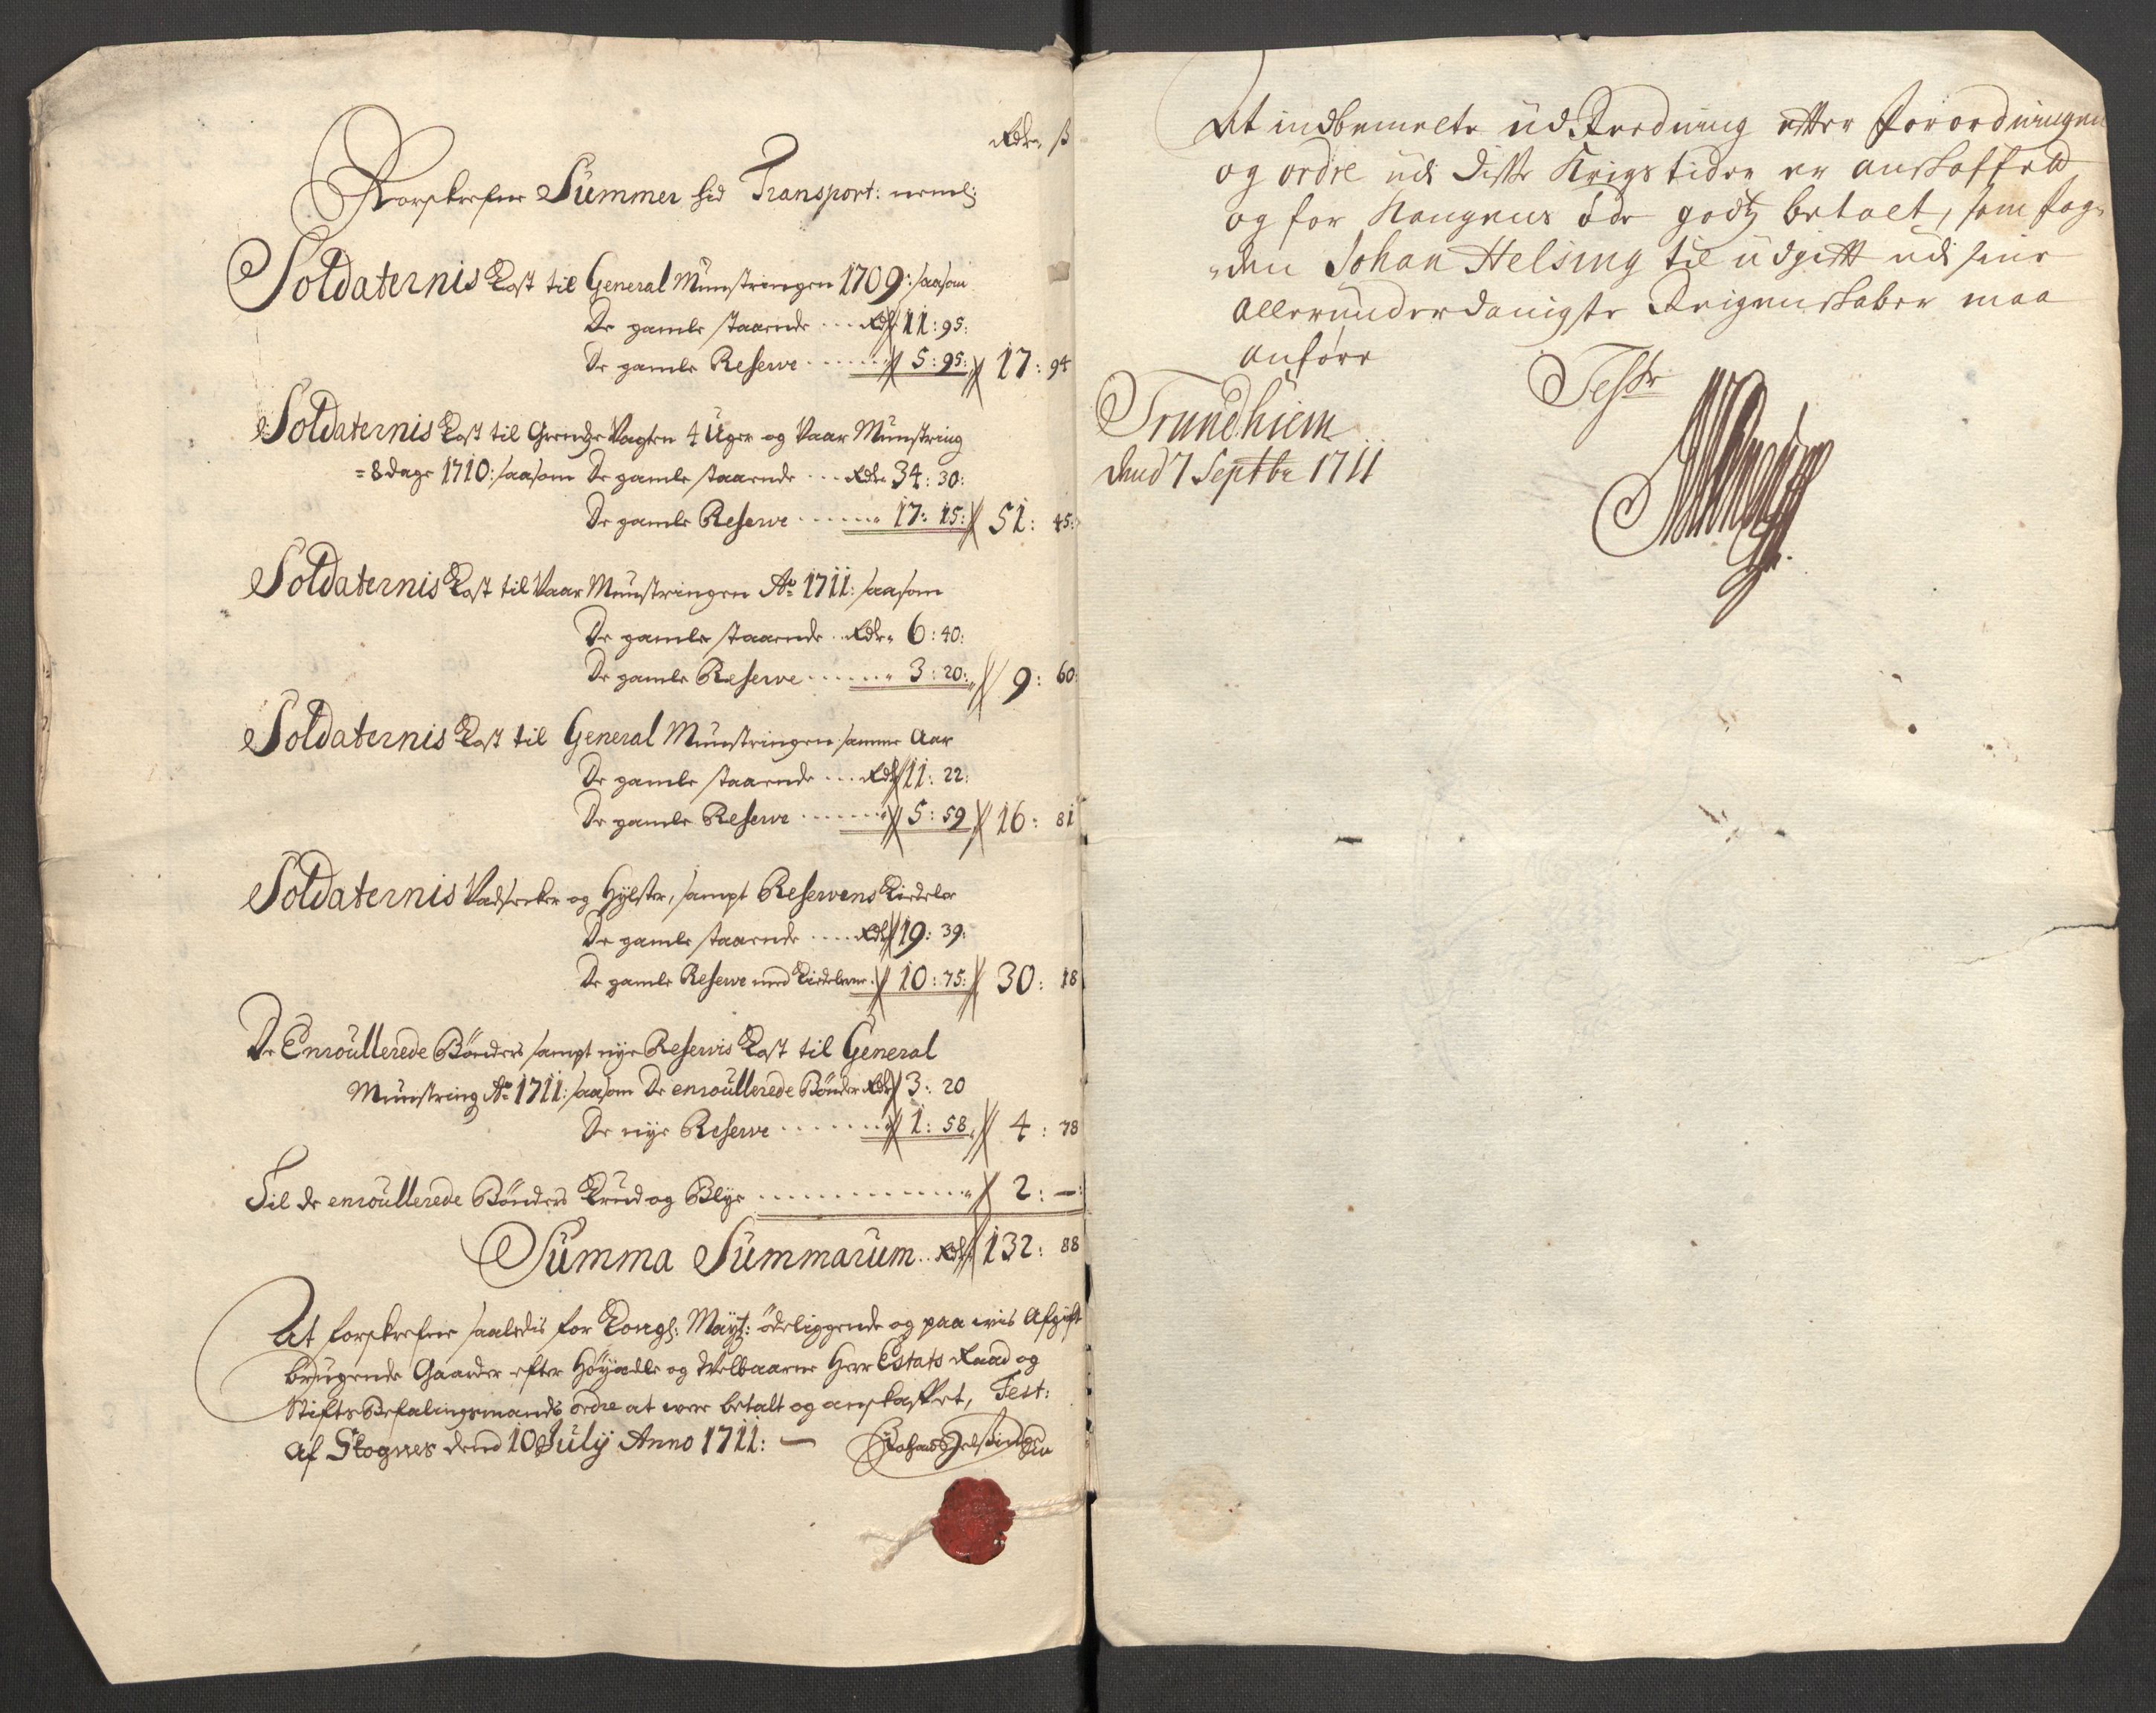 Rdr ß
Forskrefne Summer hid Transport: neml:
Soldaternis Kost til General Mynstringen 1709: saasom
De gamle staaende .... Rdr 11: 95:
De gamle Reserve ....... 5: 95: 17: 94
Soldaternis Kost til Grendze Vagten 4 Uger og Vaar Münstring
= 8 dage 1710: saasom De gamle staaende ... Rdr 34: 30:
De gamle Reserve ....... 17: 15: 51: 45:
Soldaternis Kost til Vaar Münstringen Ao 1711: saasom
De gamle staaende .. Rdr 6: 40:
De gamle Reserve ....... 3: 20: 9: 60:
Soldaternis Kost til General Münstringen samme Aar
De gamle staaende ... Rdr 11: 22:
De gamle Reserve ....... 5: 59 16: 81
Soldaternis Vadsecker og Hylster, sampt Reservens Kiedeler
De gamle staaende .... Rdr 19: 39:
De gamle Reserve med Kiedelerne. 10: 75: 30: 18
De Enroullerede Bønders sampt nye Reservis Kost til General
Münstring Ao 1711: saasom De enroullerede Bønder Rdr 3: 20
De nye Reserve ....... 1: 58. 4: 78
Til de enroullerede Bønders Krud og Blye .............. 2: —:
Summa Summarum .. Rdr 132: 88
At forskrefne saaledis for Kongl: Mayt: ödeliggende og paa wis Afgift
brugende Gaarder efter Höyædle og Velbaarne Herr Estats Raad og
Stifts Befalingsmands ordre at vere betalt og anskaffet, Test:
Af Skognes dend 10 Julij Anno 1711: — Johan Helsing
At indbemelte üdRedning etter Forordningen
og ordre udi disse Krigs tider er anskoffed
og for Kongens öde godtz betalt, som Fog-
den Johan Helsing til üdgift udi sine
allerunderdanigste Reigenskaber maa
anføre
Trundhiem Teste
dend 7 Septbr 1711